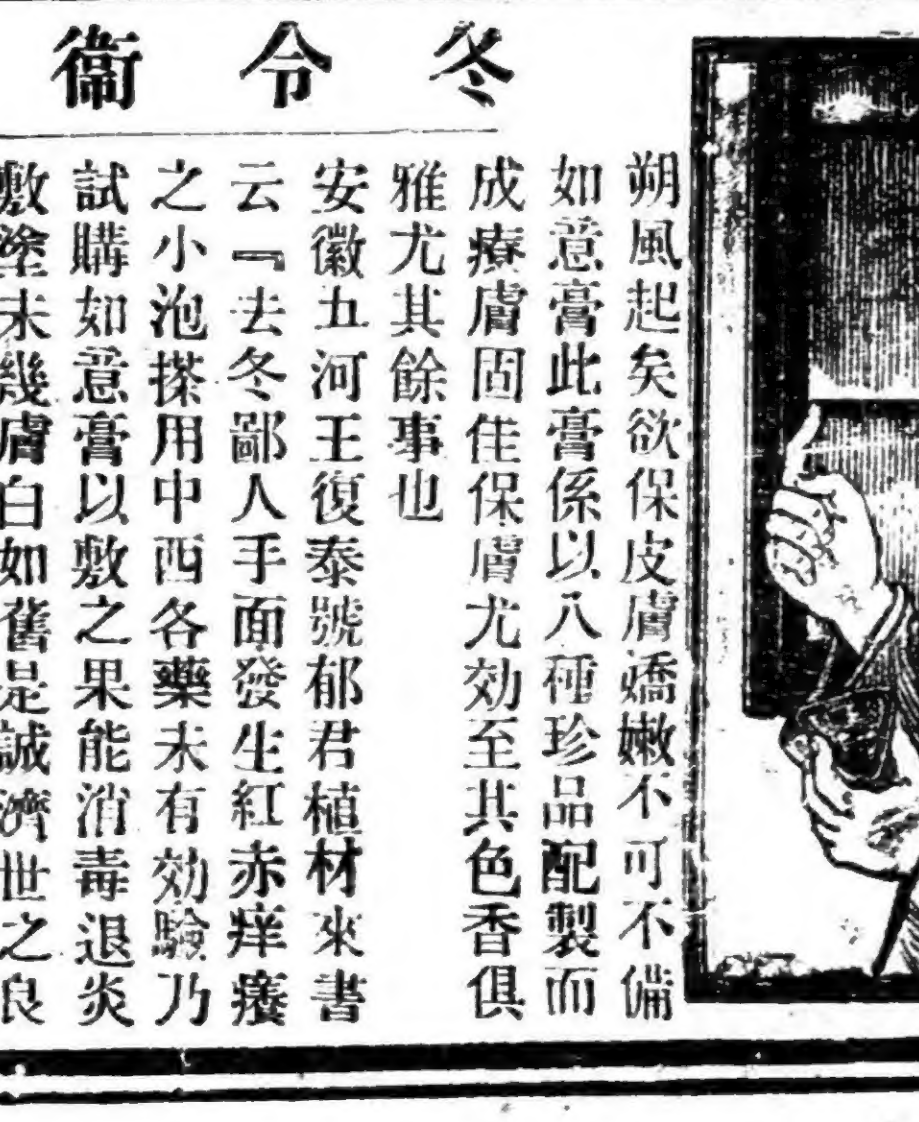 冬令衞
朔風起矣欲保皮膚嬌嫩不可不備
如意膏此膏係以八種珍品配製而
成療膚固佳保膚尤効至其色香俱
雅尤其餘事也
安徽五河王復泰號郁君植材來書
云『去冬鄙人手面發生紅赤痒癢
之小泡搽用中西各藥未有効驗乃
試購如意膏以敷之果能消毒退炎
敷塗未幾膚白如舊是誠濟世之良